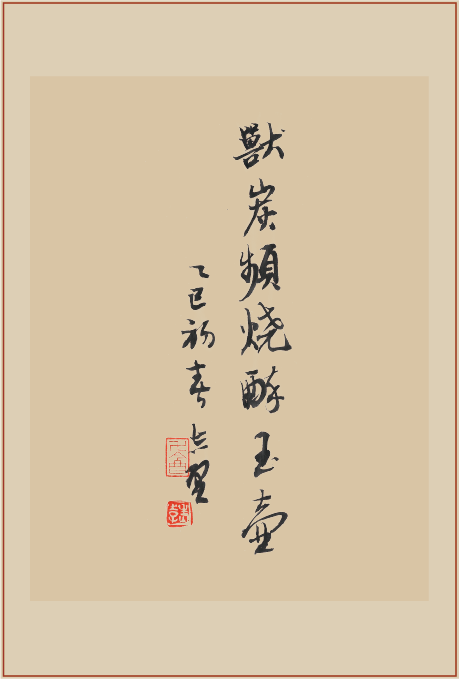 獸炭頻烧醉玉壺
乙巳初春